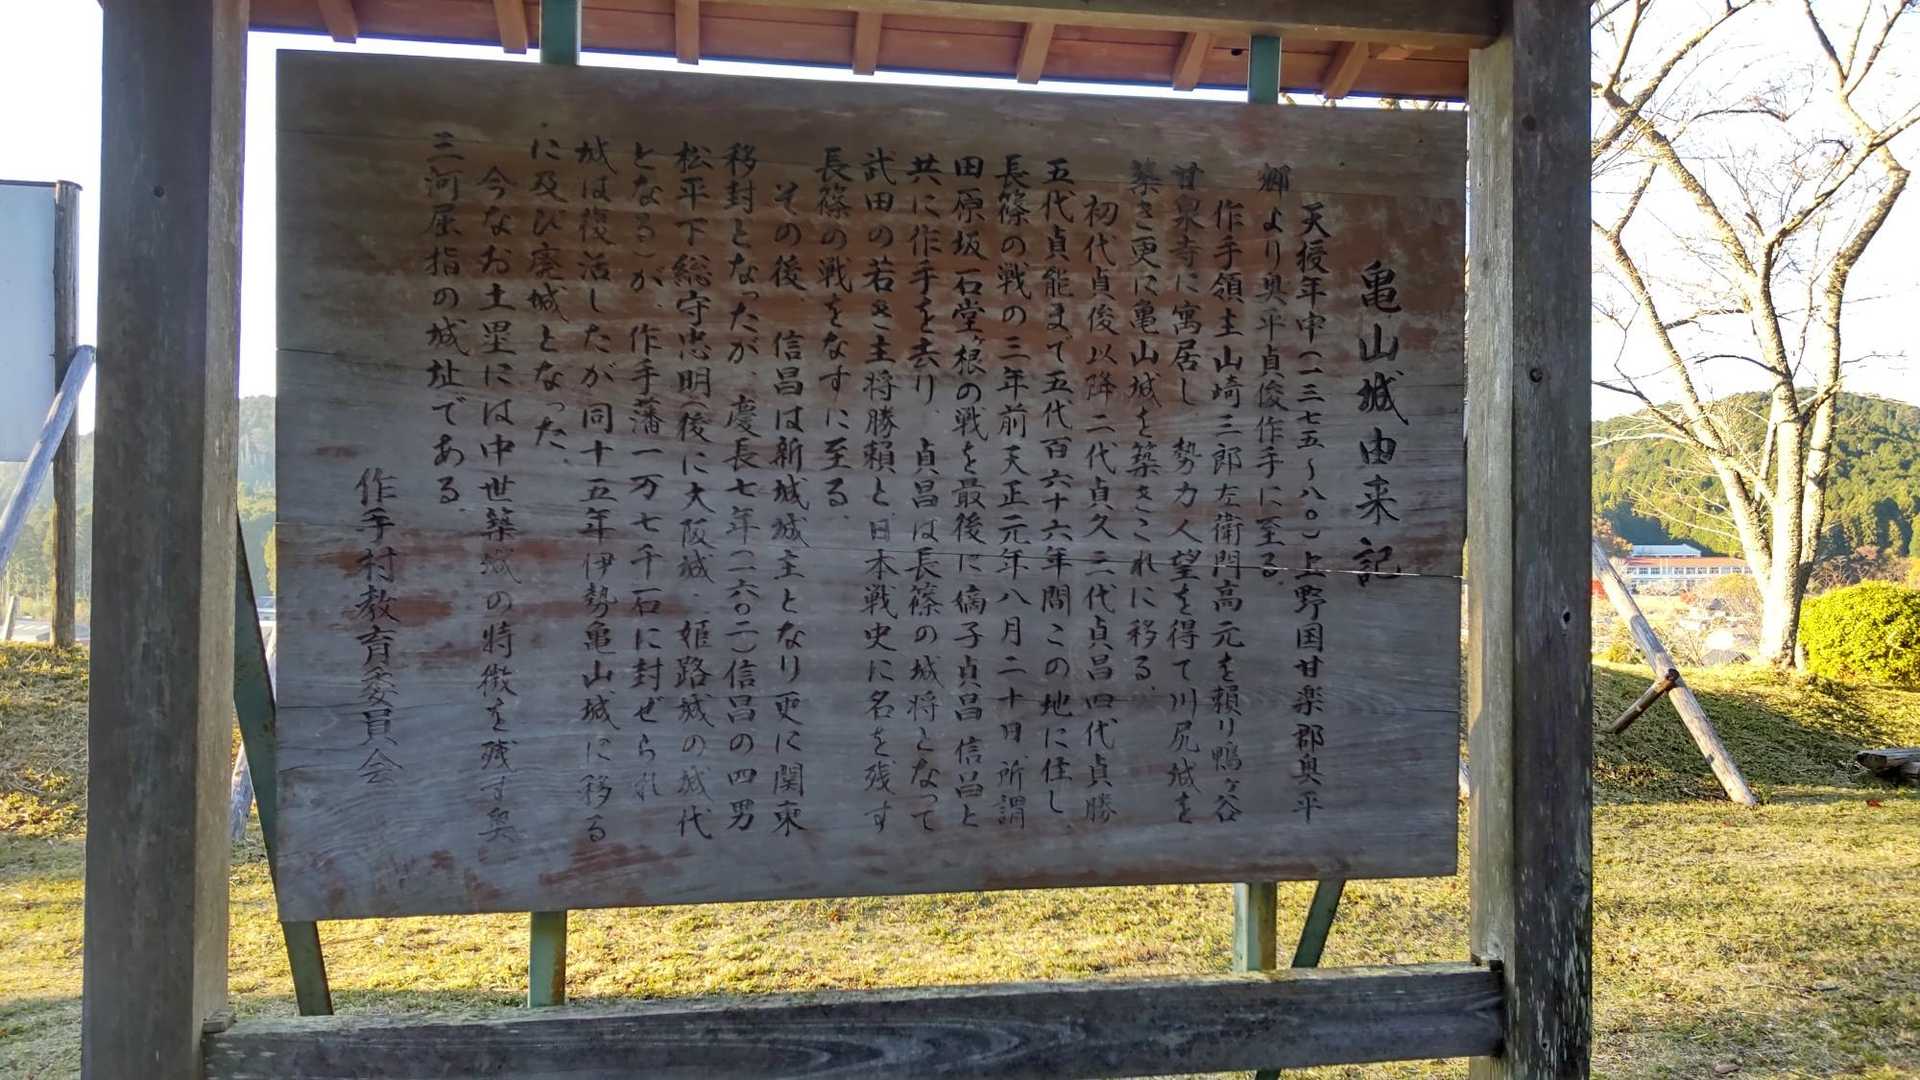 亀山城由来記
天授年中(一三七五〜八〇)上野国甘楽郡奥平
郷より奥平貞俊作手に至る。
作手領主山崎三郎左衛門高元を頼り鴨ヶ谷
甘泉寺に寓居し、勢力人望を得て川尻城を
築き更に亀山城を築きこれに移る。
初代貞俊以降二代貞久三代貞昌四代貞勝
五代貞能まで五代百六十六年間この地に住し、
長篠の戦の三年前天正元年八月二十日、所謂
田原坂石堂ヶ根の戦を最後に嫡子貞昌信昌と
共に作手を去り、貞昌は長篠の城将となって
武田の若き主将勝頼と日本戦史に名を残す
長篠の戦をなすに至る。
その後、信昌は新城城主となり更に関東
移封となったが、慶長七年(一六〇二)信昌の四男
松平下総守忠明(後に大阪城、姫路城の城代
となる)が、作手藩一万七千石に封ぜられ
城は復活したが同十五年伊勢亀山城に移る
に及び廃城となった。
今なお土塁には中世築城の特徴を残す奥
三河屈指の城址である。
作手村教育委員会